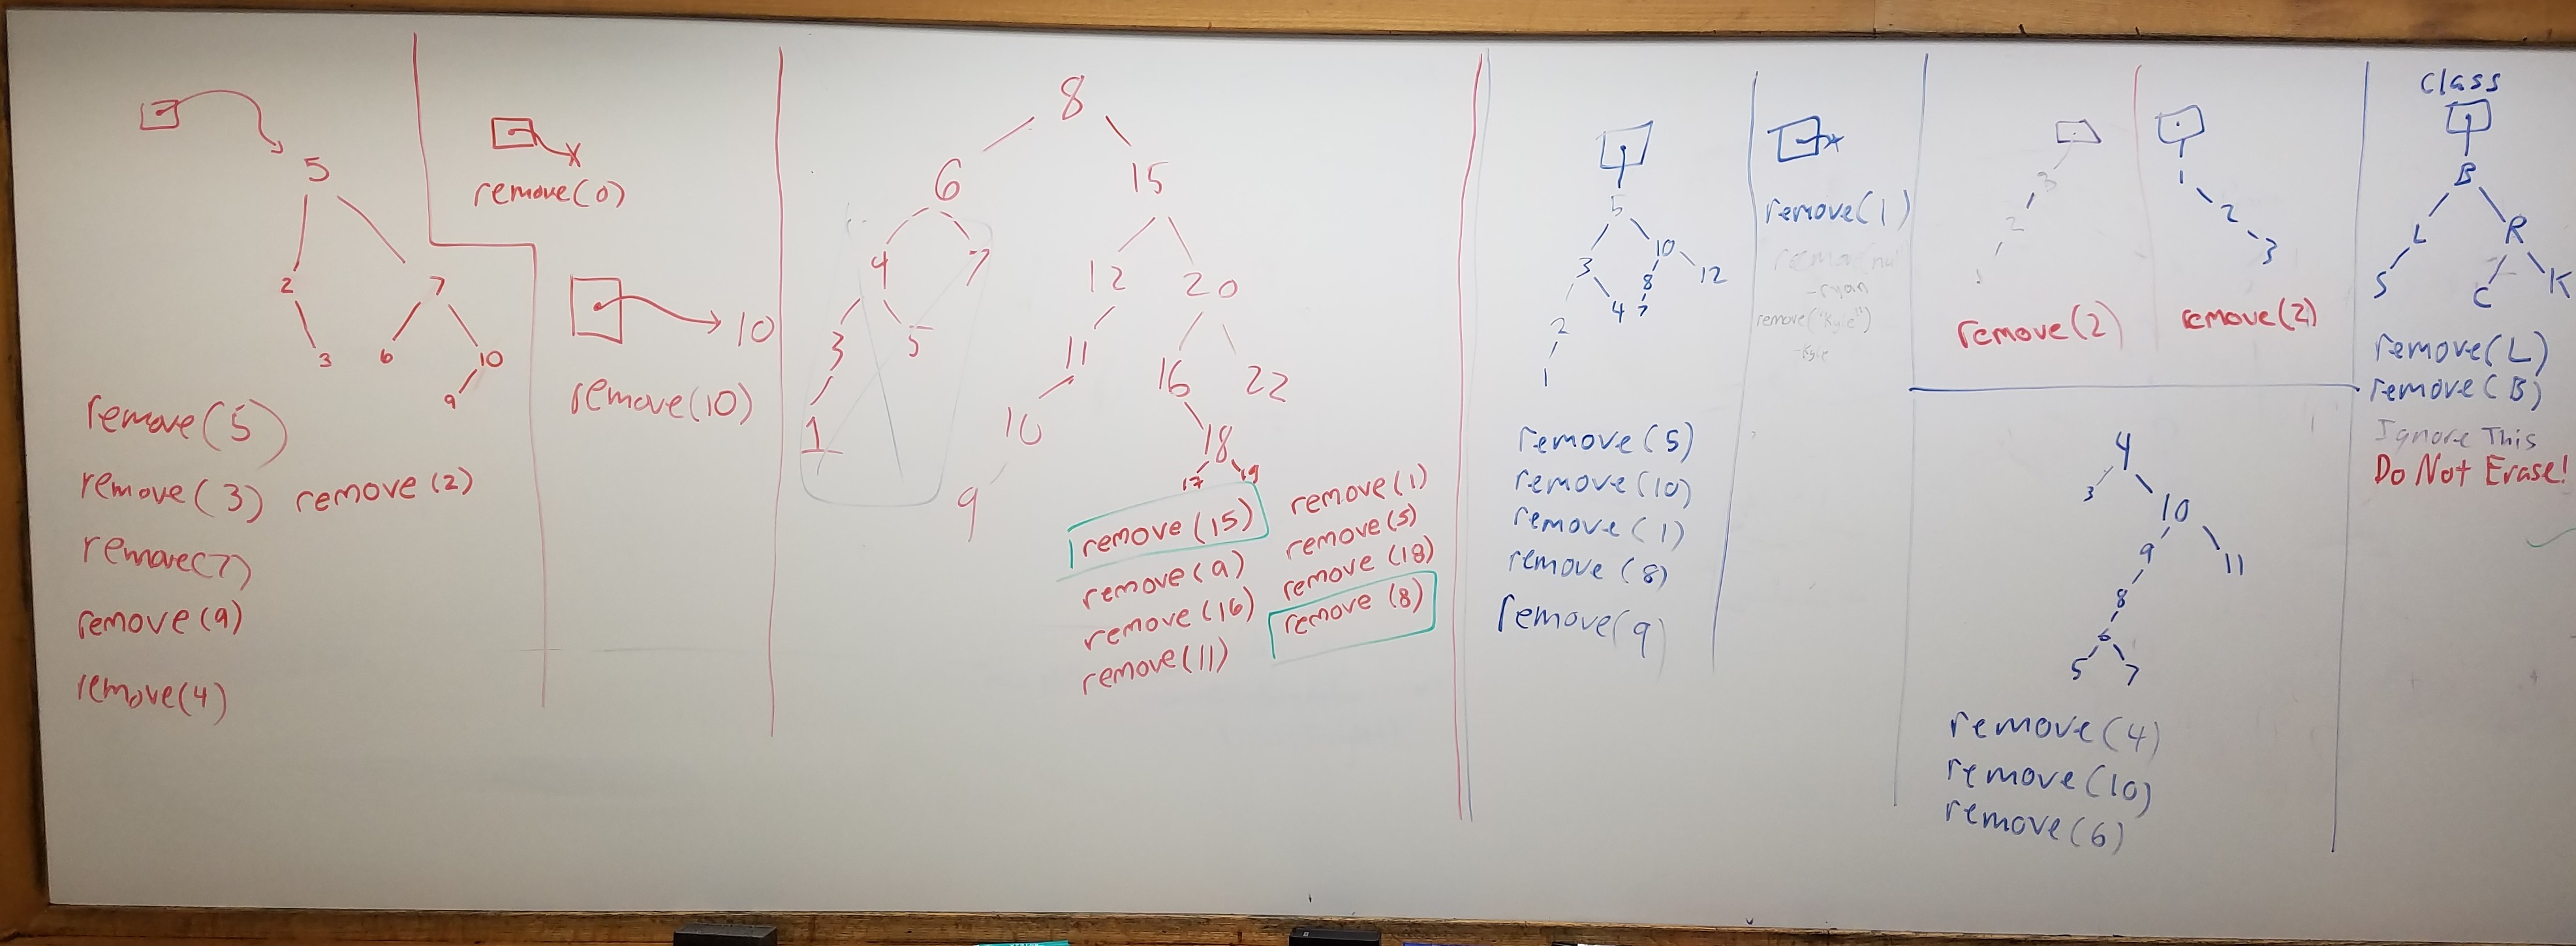 5
2 7
3 6 10
9
remove(5)
remove(3) remove(2)
remove(7)
remove(9)
remove(4)
remove(0)
10
remove(10)
8
6 15
4 7 12 20
3 5 11 16 22
1 10 18
9 17 19
remove(15) remove(1)
remove(9) remove(5)
remove(16) remove(18)
remove(11) remove(8)
5
3 10
2 4 8 12
1 7
remove(5)
remove(10)
remove(1)
remove(8)
remove(9)
remove(1)
-ryan
remove("Kyle")
-Kyle
3
2
1
remove(2)
1
2
3
remove(2)
4
3 10
9 11
8
6
5 7
remove(4)
remove(10)
remove(6)
Class
B
L R
S C K
remove(L)
remove(B)
Ignore This
Do Not Erase!